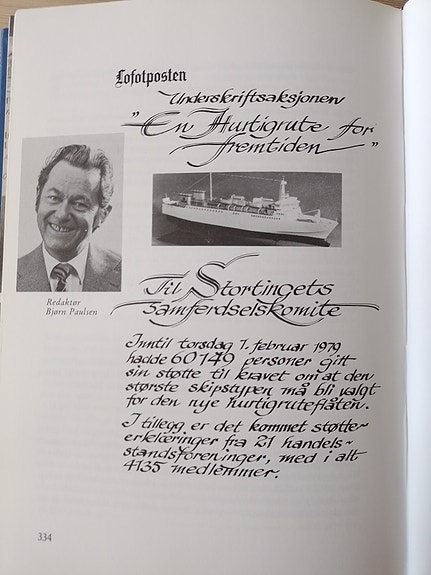 Lofotposten
Underskriftsaksjonen
"En Hurtigrute for
fremtiden"
Redaktør
Bjørn Paulsen
Til Stortingets
samferdselskomite
Inntil torsdag 1. februar 1979
hadde 60149 personer gitt
sin støtte til kravet om at den
største skipstypen må bli valgt
for den nye hurtigruteflåten.
I tillegg er det kommet støtte-
erklæringer fra 21 handels-
standsforeninger, med i alt
4135 medlemmer.
334